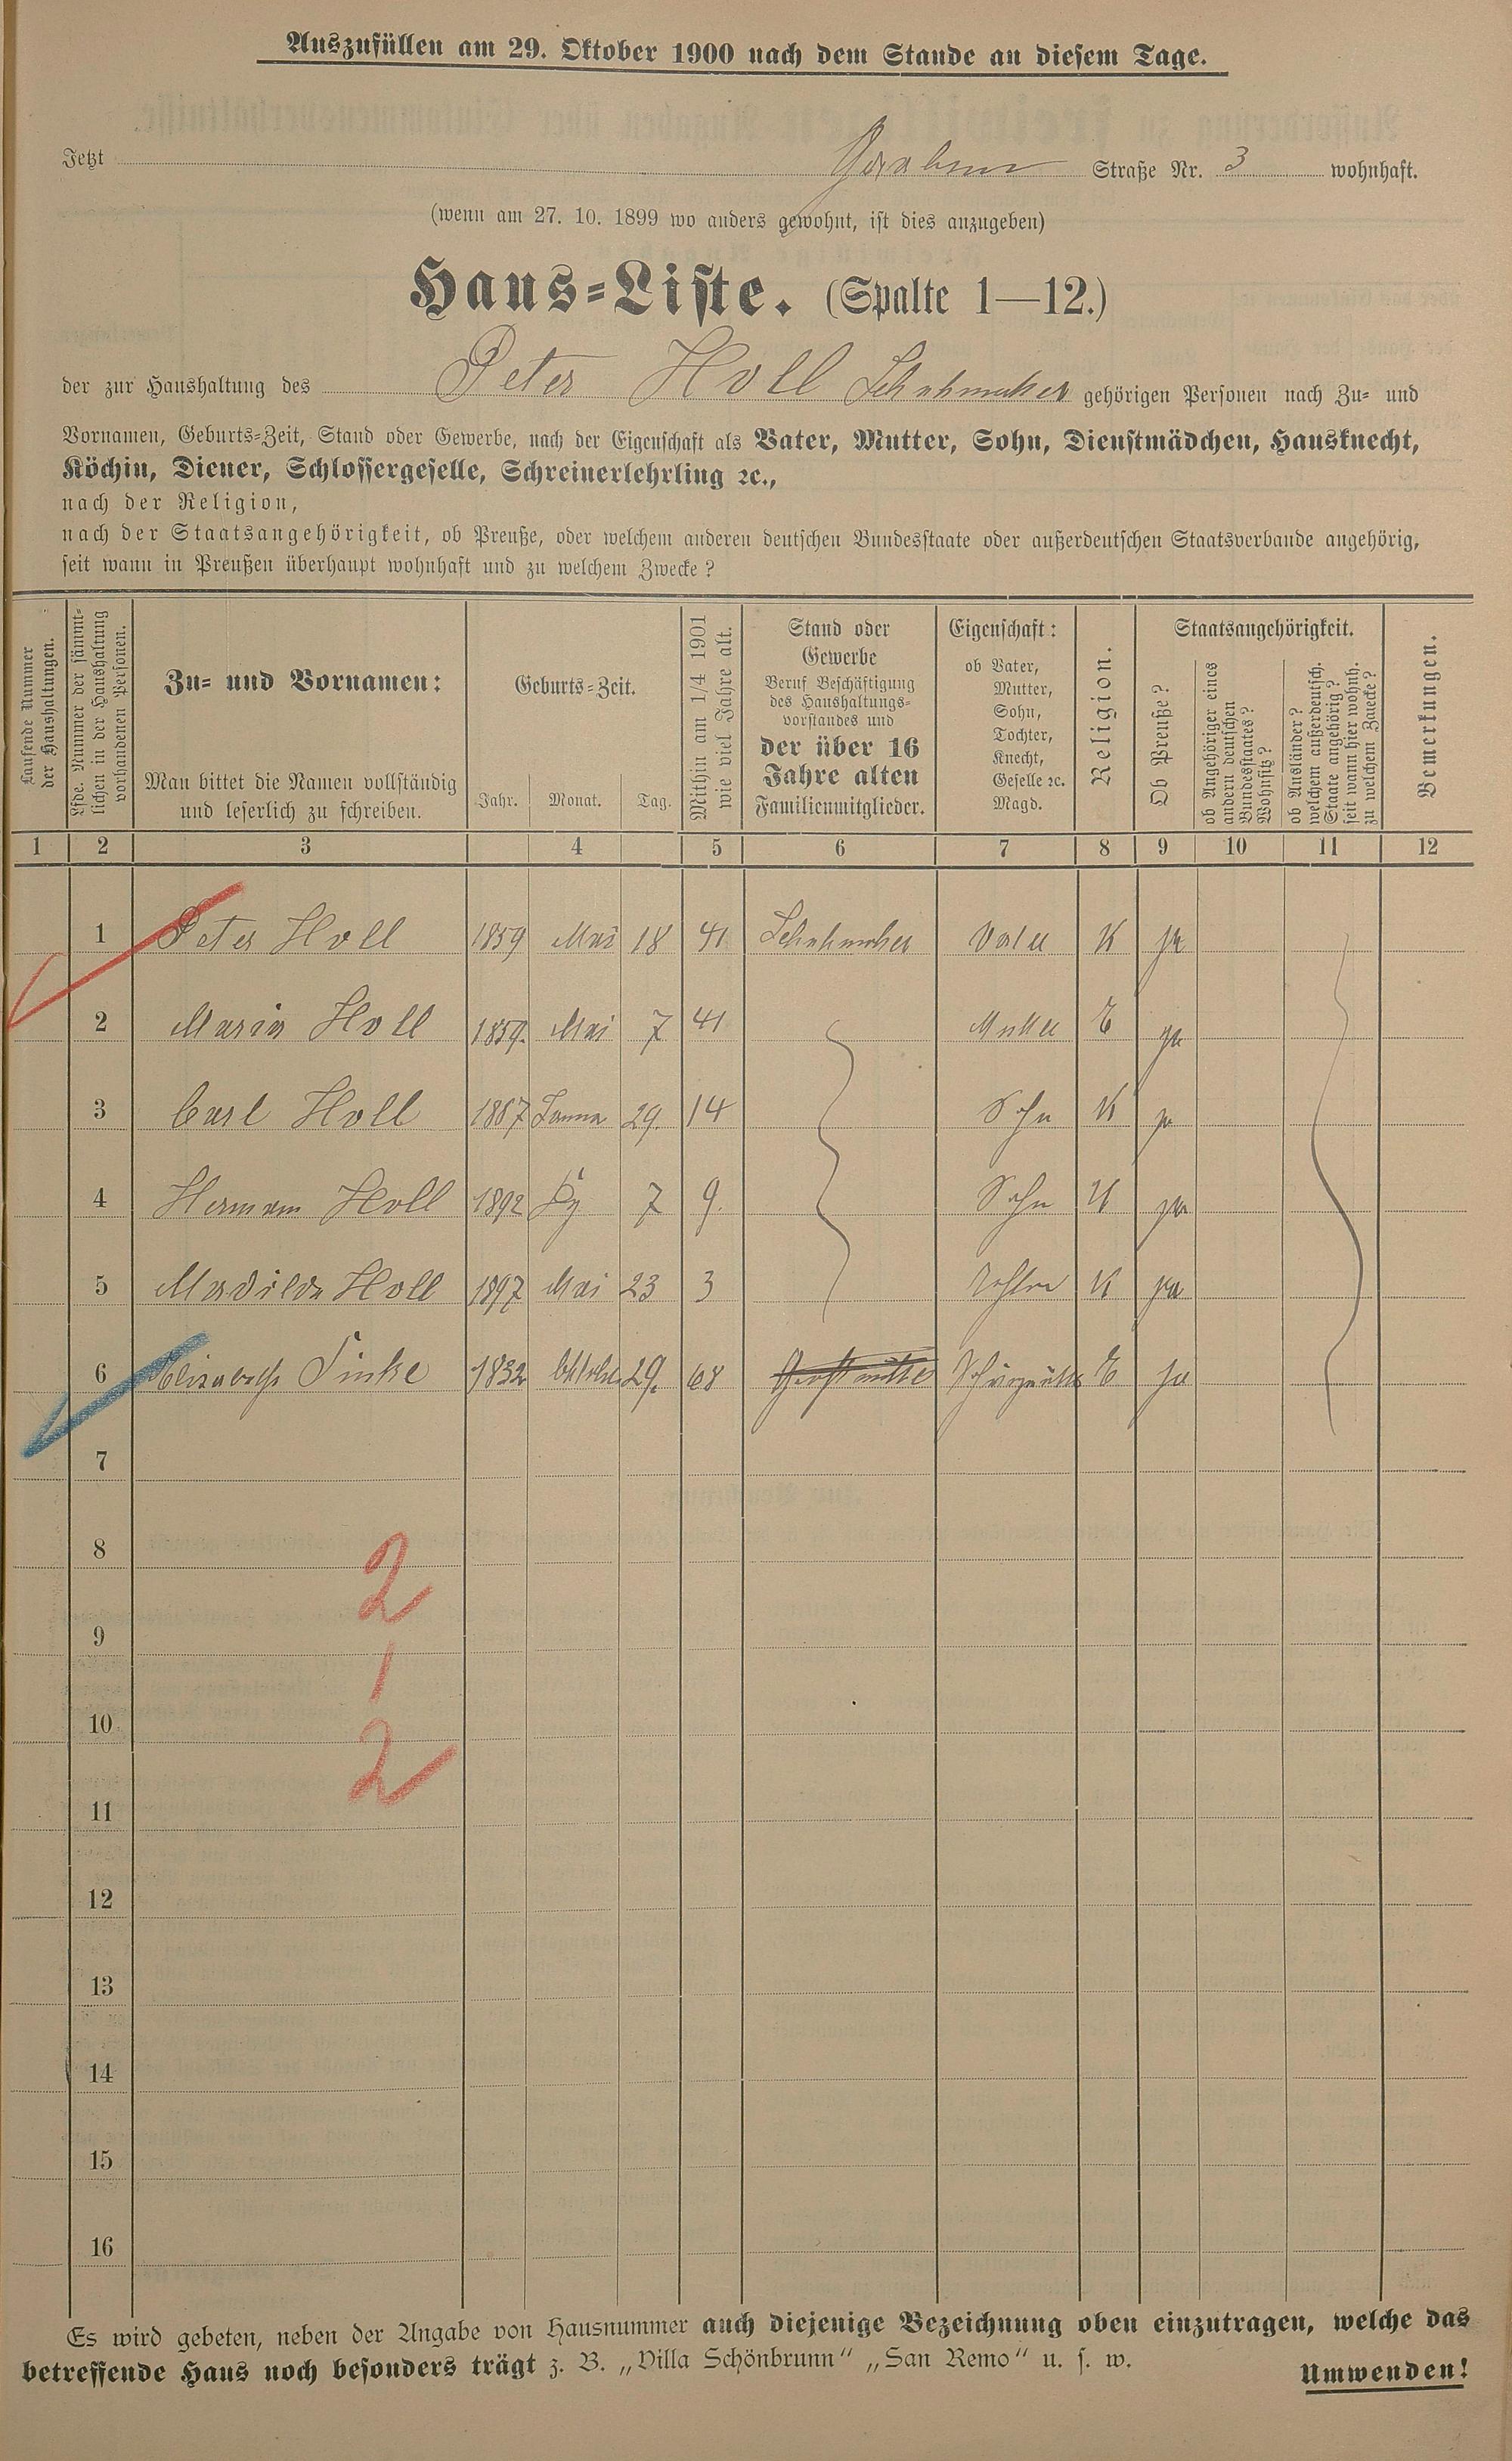 Auszufüllen am 29. Oktober 1900 nach dem Stande an diesem Tage.
Jetzt Graben Straße Nr. 3 wohnhaft.
(wenn am 27. 10. 1899 wo anders gewohnt, ist dies anzugeben)
Haus-Liste. (Spalte 1—12.)
der zur Haushaltung des Peter Holl Schuhmacher gehörigen Personen nach Zu- und
Vornamen, Geburts-Zeit, Stand oder Gewerbe, nach der Eigenschaft als Vater, Mutter, Sohn, Dienstmädchen, Hausknecht,
Köchin, Diener, Schlossergeselle, Schreinerlehrling ꝛc.,
nach der Religion,
nach der Staatsangehörigkeit, ob Preuße, oder welchem anderen deutschen Bundesstaate oder außerdeutschen Staatsverbande angehörig,
seit wann in Preußen überhaupt wohnhaft und zu welchem Zwecke?
Laufende Nummer
der Haushaltungen.
Lfde. Nummer der sämmt-
lichen in der Haushaltung
vorhandenen Personen.
Zu- und Vornamen:
Man bittet die Namen vollständig
und leserlich zu schreiben.
Geburts-Zeit.
Jahr. Monat. Tag.
Mithin am 1/4 1901
wie viel Jahre alt.
Stand oder
Gewerbe
Beruf Beschäftigung
des Haushaltungs-
vorstandes und
der über 16
Jahre alten
Familienmitglieder.
Eigenschaft:
ob Vater,
Mutter,
Sohn,
Tochter,
Knecht,
Geselle ꝛc.
Magd.
Religion.
Staatsangehörigkeit.
Ob Preuße?
ob Angehöriger eines
andern deutschen
Bundesstaates?
Wohnsitz?
ob Ausländer?
welchem außerdeutsch.
Staate angehörig?
seit wann hier wohnh.
zu welchem Zwecke?
Bemerkungen.
1 2 3 4 5 6 7 8 9 10 11 12
1 Peter Holl 1859 Mai 18 41 Schuhmacher Vater K ja
2 Maria Holl 1859. Mai 7 41 Mutter E ja
3 Carl Holl 1887 29. 14 Sohn K ja
4 Hermann Holl 1892 7 9. Sohn K ja
5 Madilda Holl 1897 Mai 23 3 Tochter K ja
6 Elisabeth Finke 1832 Oktober 29. 68 Großmutter E ja
7
8
2
9
1
10
2
11
12
13
14
15
16
Es wird gebeten, neben der Angabe von Hausnummer auch diejenige Bezeichnung oben einzutragen, welche das
betreffende Haus noch besonders trägt z. B. „Villa Schönbrunn“ „San Remo“ u. s. w.
Umwenden!